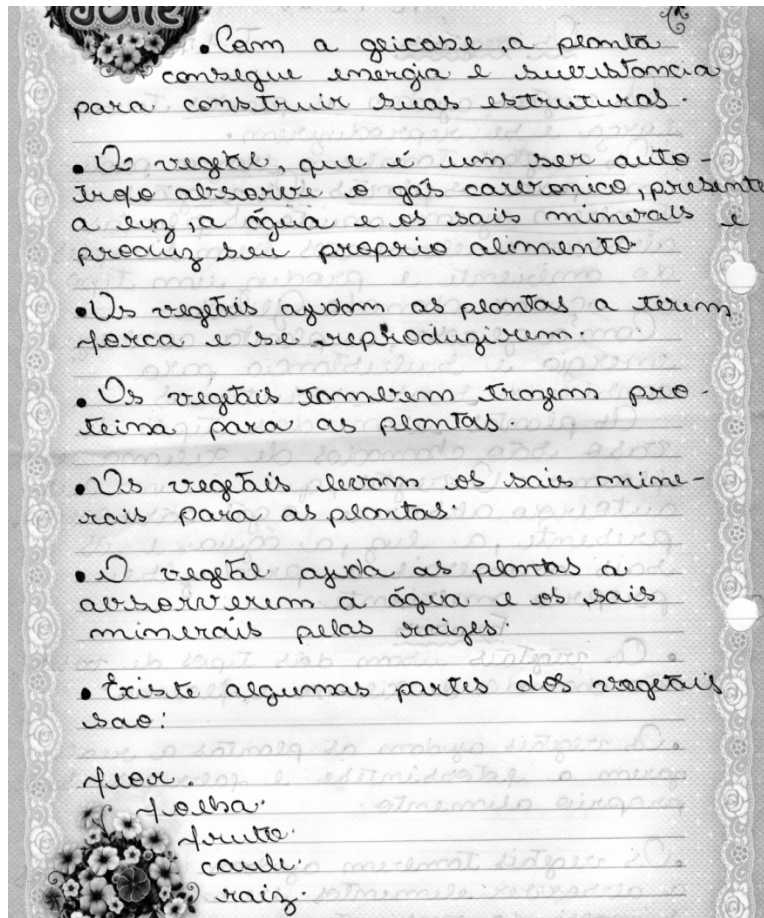 • Com a glicose, a planta
consegue energia e subistância
para construir suas estruturas.
• O vegetal, que é um ser auto-
trofo absorve o gás carbonico, presente
a luz, a água e os sais minerais e
produz seu proprio alimento
• Os vegetais ajudam as plantas a terem
forca e se reproduzirem.
• Os vegetais tambem trazem pro-
teina para as plantas.
• Os vegetais levam os sais mine-
rais para as plantas.
• O vegetal ajuda as plantas a
absorverem a água e os sais
minerais pelas raizes.
• Existe algumas partes dos vegetais
sao:
flor.
folha.
fruto.
caule.
raiz.